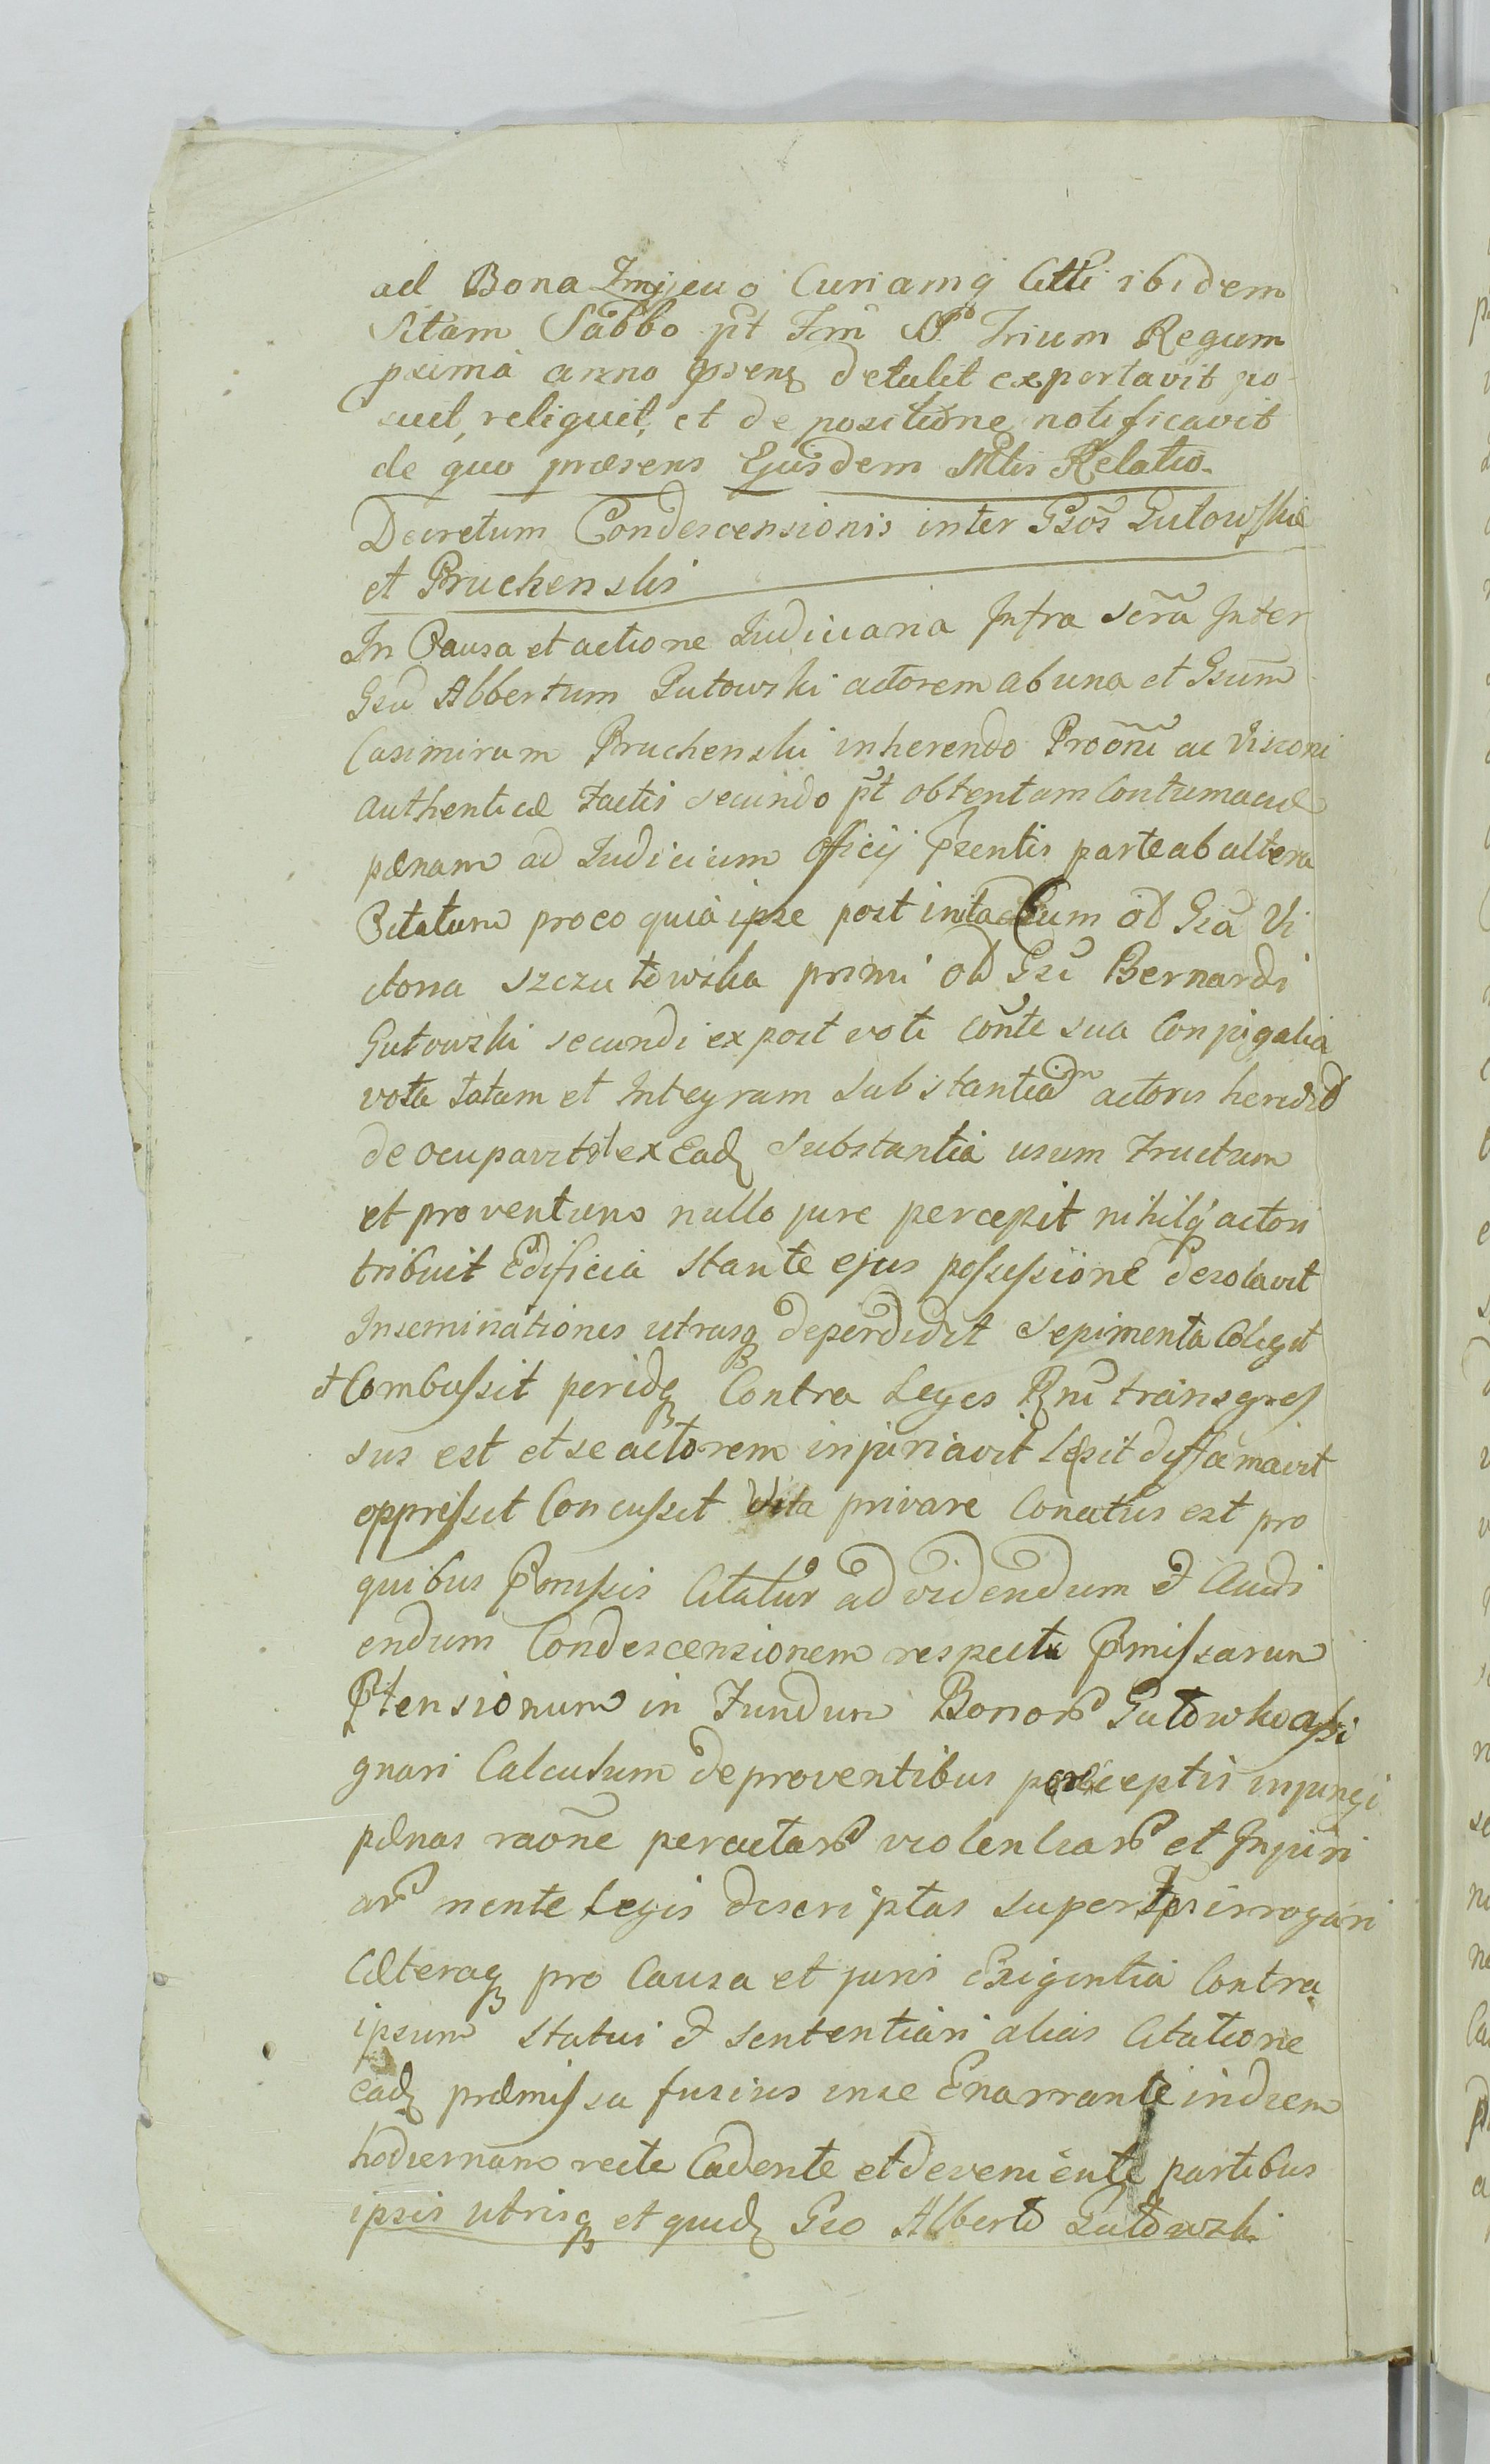 ad Bona Zmijewo Curiamq Citti ibidem
Sitam Sabbo pt Fm SS Trium Regum
pxima anno psenz detulit exportavit po-
suit, reliquit, et de positione notificavit
de quo præsens Ejusdem Mtis Relatio.
Decretum Condescensionis inter Gsos Gutowskie
et Bruchenski
In Causa et actione Judiciaria Infra Scrã Inter
Gsũ Albertum Gutowski actorem ab una et Gsum
Casimirum Bruchenski inherendo Proõni ac Visioni
authenticæ Factis secundo pt obtentam Contumaciæ
pænam ad Judicium Officij psentis parte ab altera
Citatum pro eo quia ipse post initactum od Gsa Vi
ctoria Szczutowska primi od Gsi Bernardi
Gutowski secundi ex post voti Conte sua Conjugalia
vota totam et Integram Substantiam actoris heredid
de ocupavit et ex Eadz Substantia usum Fructum
et proventuns nullo jure percepit nihilq actori
tribuit Edificia Stante ejus possessione desolavit
Inseminationes utrasq deperdidit Sepimenta Colegit
et Combussit peridq Contra Leges Rni transgres
sus est et se actorem injuriavit lęsit diffamavit
oppressit Concussit Vita privare Conatus est pro
quibus pmissis Citatur ad videndum et Audi
endum Condescensionem respectu pmissarum
ptensionum in Fundum Bonor Gutowko assi
gnari Calculum de proventibus perceptis injungi
pænas raone peractar violentiar et Injuri
ar mente Legis descriptas super Ipso irrogari
Cæteraq pro Causa et juris Exigentia Contra
ipsum Statui et Sententiari alias Citatione
eadz præmissa fusius in se Enarrante in diem
hodiernam recte Cadente et deveniente partibus
ipsis utrisq et quidz Gso Alberto Gutowski